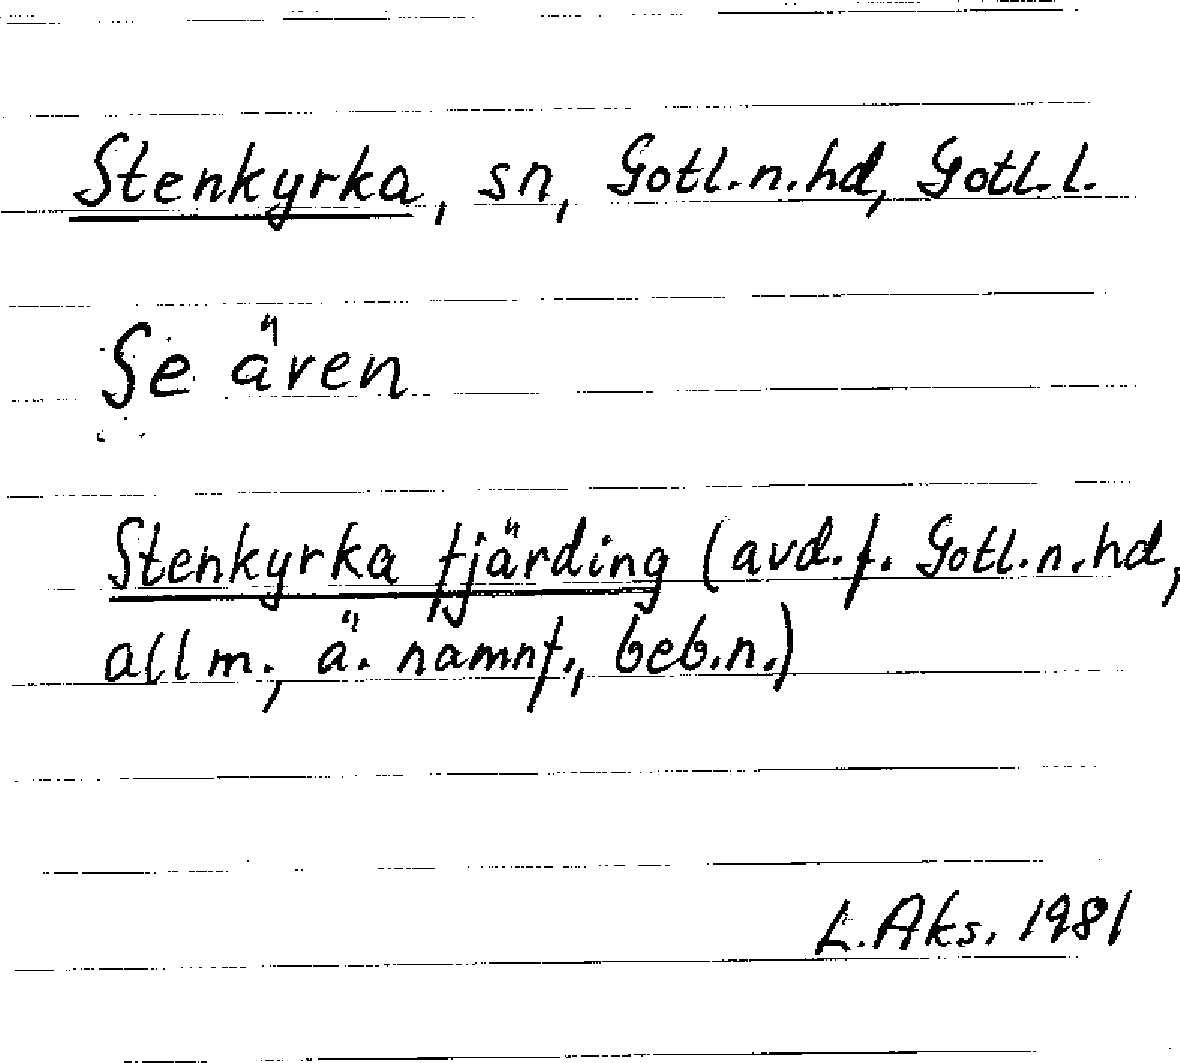 Stenkyrka, sn, Gotl.n.hd, Gotl.l.
Se även
Stenkyrka fjärding (avd.f. Gotl.n.hd,
allm., ä. namnf., beb.n.)
L.Aks. 1981